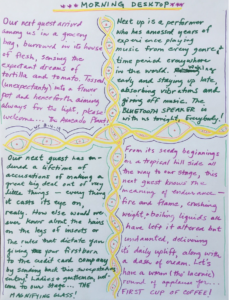 MORNING DESKTOP
Our next guest arrived
among us in a grocery
bag, burrowed in its house
of flesh, sensing the
expectant dreams of
tortilla and tomato. Tossed
(unexpectantly) into a flower
pot and henceforth aiming
always for the light, please
welcome... The Avocado Tree!
Next up is a performer
who has amassed years of
experience playing
music from every genre &
time period everywhere
in the world. Regular
early and staying up late,
absorbing vibrations and
giving off music. The
BLUETOOTH SPEAKER is
with us tonight, Everybody!
Our next guest has en-
dured a lifetime of
accusations of making a
great big deal out of very
little things - every thing
it casts its eye on,
really. How else would we
know about the hairs
on the legs of insects or
the rules that dictate you
giving the your firstborn
to the credit card company
by sending back this
entry? Ladies & gentlemen, wel-
come to our stage... THE
MAGNIFYING GLASS!
From its seedy beginnings
in a tropical hill side all
the way to our stage, this
next guest knows the
meaning of endurance -
fire and flame, crushing
weight & boiling liquids are
have left it altered but
undaunted, delivering
its daily uplift, along with
a dash of cream. Let's
have a warm (and laconic)
round of applause for...
FIRST CUP OF COFFEE!